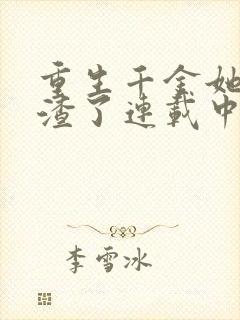 重生千金她
渣了連載中
李雪冰